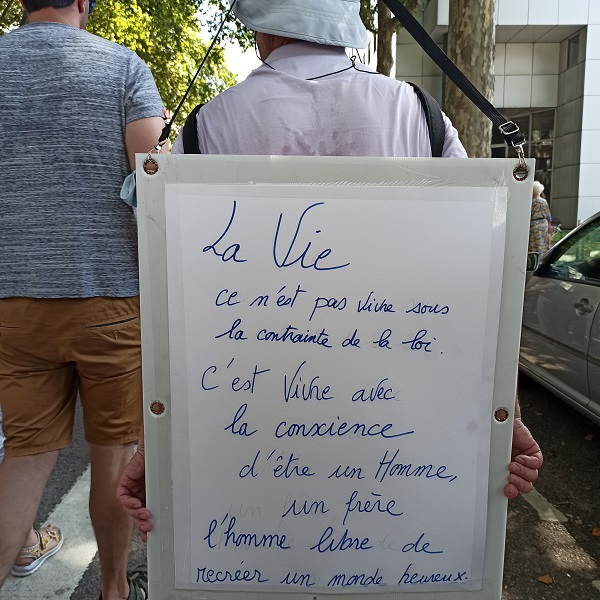 La Vie
ce n'est pas vivre sous
la contrainte de la loi.
C'est Vivre avec
la conxcience
d'être un Homme,
un frère
l'homme libre de
recréer un monde heureux.